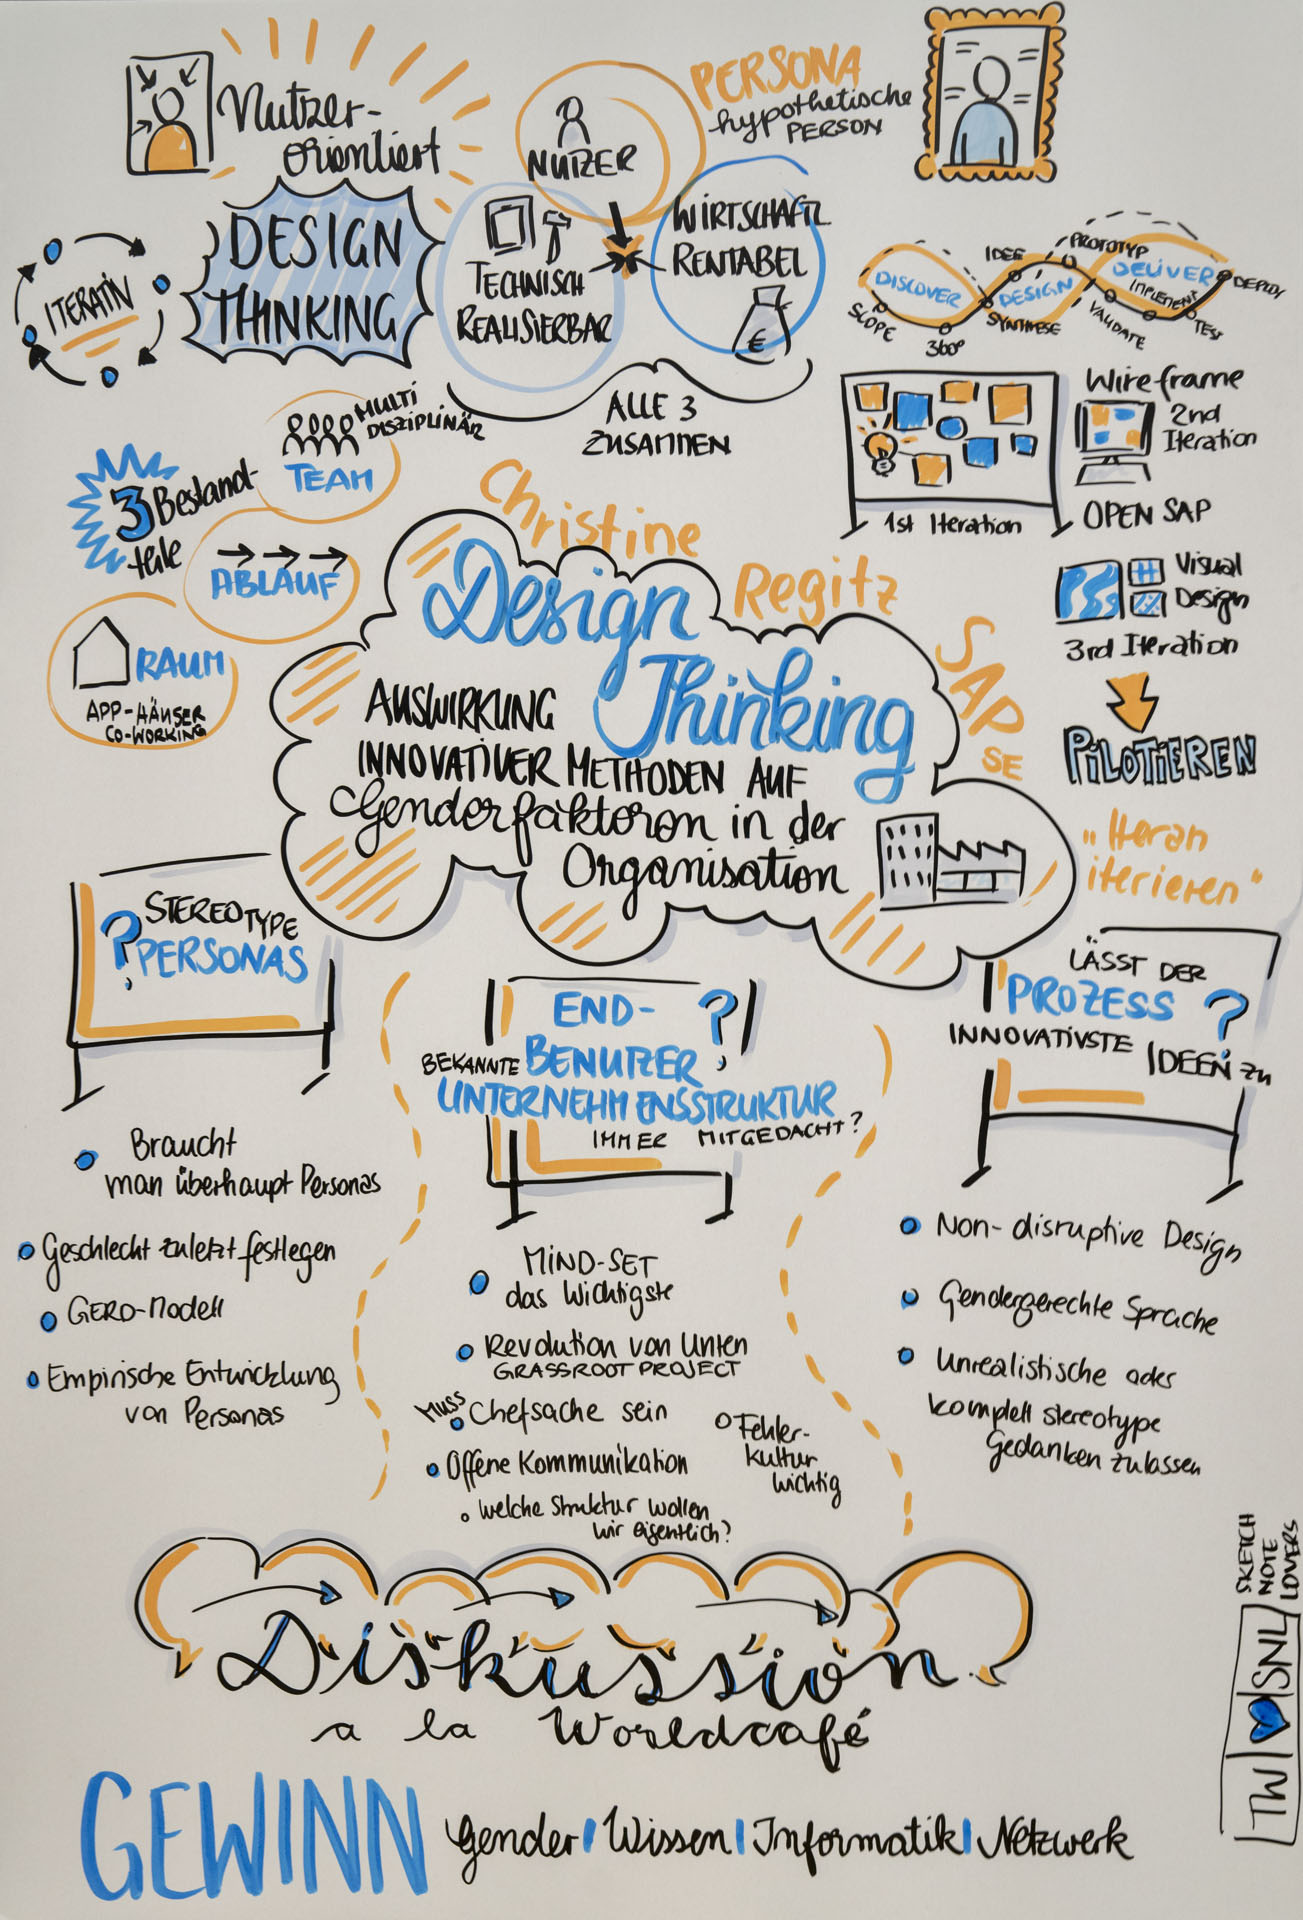 Nutzer-
orientiert
DESIGN
THINKING
ITERATIV
NUTZER
TECHNISCH
REALISIERBAR
WIRTSCHAFTL
RENTABEL
€
ALLE 3
ZUSAMMEN
PERSONA
hypothetische
PERSON
DISCOVER
DESIGN
DELIVER
SCOPE
360°
IDEE
SYNTHESE
PROTOTYP
VALIDATE
IMPLEMENT
TEST
DEPLOY
1st Iteration
Wireframe
2nd
Iteration
OPEN SAP
Visual
Design
3rd Iteration
PILOTIEREN
"Iteran
iterieren"
3 Bestand-
teile
MULTI
DISZIPLINÄR
TEAM
ABLAUF
RAUM
APP-HÄUSER
CO-WORKING
Christine
Regitz
SAP
SE
Design
Thinking
AUSWIRKUNG
INNOVATIVER METHODEN AUF
Genderfaktoren in der
Organisation
? STEREOTYPE
PERSONAS
Braucht
man überhaupt Personas
Geschlecht zuletzt festlegen
GERD-Modell
Empirische Entwicklung
von Personas
END-
BEKANNTE BENUTZER ?
UNTERNEHMENSSTRUKTUR
IMMER MITGEDACHT?
MIND-SET
das Wichtigste
Revolution von Unten
GRASSROOT PROJECT
Muss
Chefsache sein
Offene Kommunikation
welche Struktur wollen
wir eigentlich?
Fehler-
kultur
wichtig
LÄSST DER
PROZESS ?
INNOVATIVSTE IDEEN zu
Non-disruptive Design
Gendergerechte Sprache
Unrealistische oder
komplett stereotype
Gedanken zulassen
Diskussion
a la Worldcafé
GEWINN Gender | Wissen | Informatik | Netzwerk
TW | SNL
SKETCH
NOTE
LOVERS